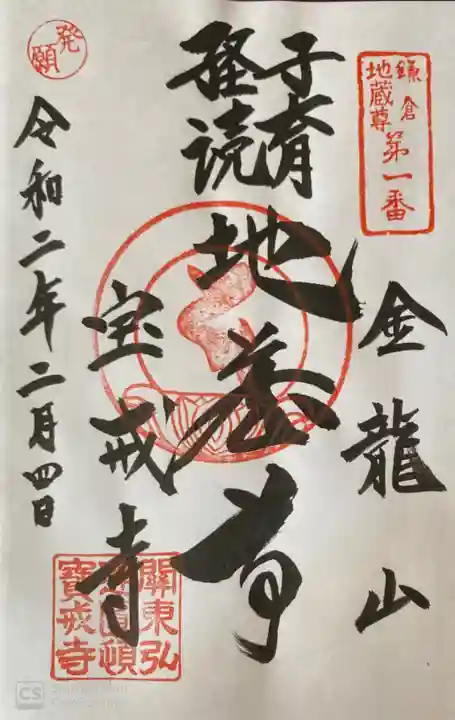 鎌倉
地蔵尊
第一番
金龍山
子育
経読
地蔵尊
宝戒寺
關東弘
圓頓
寶戒寺
発願
令和二年二月四日
CS